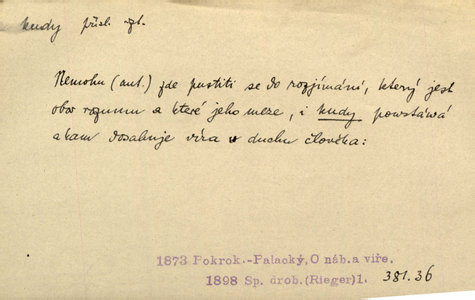 kudy přísl. vzt.
Nemohu (aut.) zde pustiti se do rozjímání, který jest
obor rozumu a které jeho meze, i kudy powstáwá
a kam dosahuje víra w duchu člověka:
1873 Pokrok.-Palacký, O náb. a víře.
1898 Sp. drob.(Rieger)1. 381.36